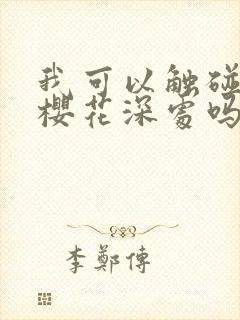 我可以触碰
樱花深处吗
李郑傳